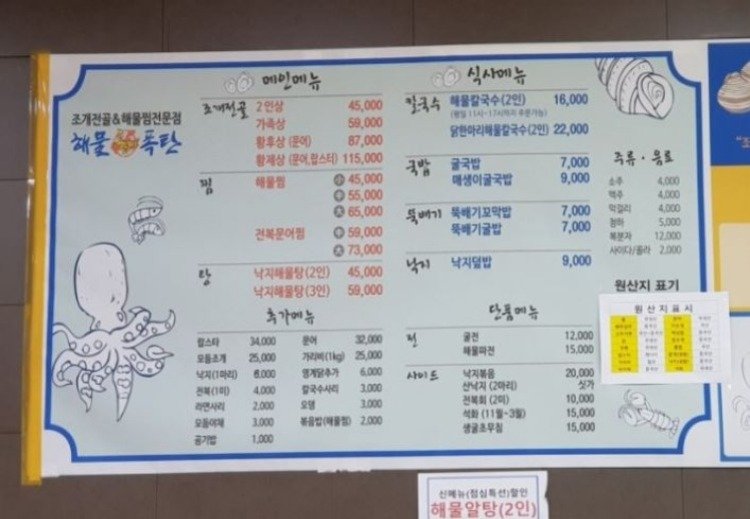 조개전골&해물찜전문점
해물폭탄
메인메뉴
조개전골 2인상 45,000
가족상 59,000
황후상 (문어) 87,000
황제상 (문어,랍스터) 115,000
찜 해물찜 小 45,000
中 55,000
大 65,000
전복문어찜 中 59,000
大 73,000
탕 낙지해물탕(2인) 45,000
낙지해물탕(3인) 59,000
추가메뉴
랍스타 34,000
모듬조개 25,000
낙지(1마리) 6,000
전복(1미) 4,000
라면사리 2,000
모듬야채 3,000
공기밥 1,000
문어 32,000
가리비(1kg) 25,000
영계닭추가 6,000
칼국수사리 3,000
오뎅 3,000
볶음밥(해물) 2,000
식사메뉴
칼국수 해물칼국수(2인) 16,000
(평일 11시~17시까지 주문가능)
닭한마리해물칼국수(2인) 22,000
국밥 굴국밥 7,000
매생이굴국밥 9,000
뚝배기 뚝배기꼬막밥 7,000
뚝배기굴밥 7,000
낙지 낙지덮밥 9,000
단품메뉴
전 굴전 12,000
해물파전 15,000
사이드 낙지볶음 20,000
산낙지 (2마리) 싯가
전복회 (2미) 10,000
석화 (11월~3월) 15,000
생굴초무침 15,000
주류 · 음료
소주 4,000
맥주 4,000
막걸리 4,000
청하 5,000
복분자 12,000
사이다/콜라 2,000
원산지 표기
원산지표시
신메뉴(점심특선)할인
해물알탕(2인)